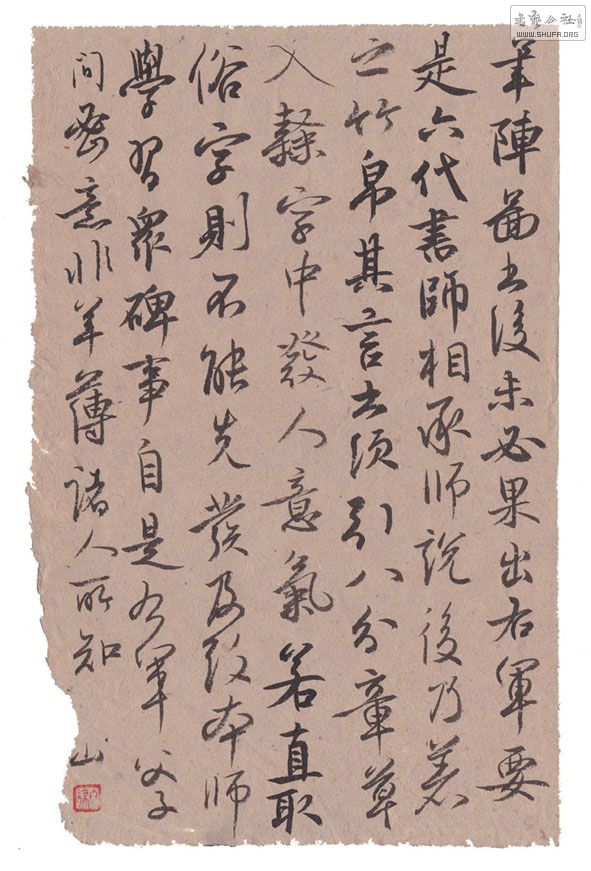 筆陣圖书後未必果出右軍要
是六代書師相承师說後乃著
之竹帛其言书須引八分章草
入隸字中發人意氣若直取
俗字則不能先發及改本师
學習眾碑事自是右軍父子
间密意非羊薄諸人所知
山
書藝公社
WWW.SHUFA.ORG